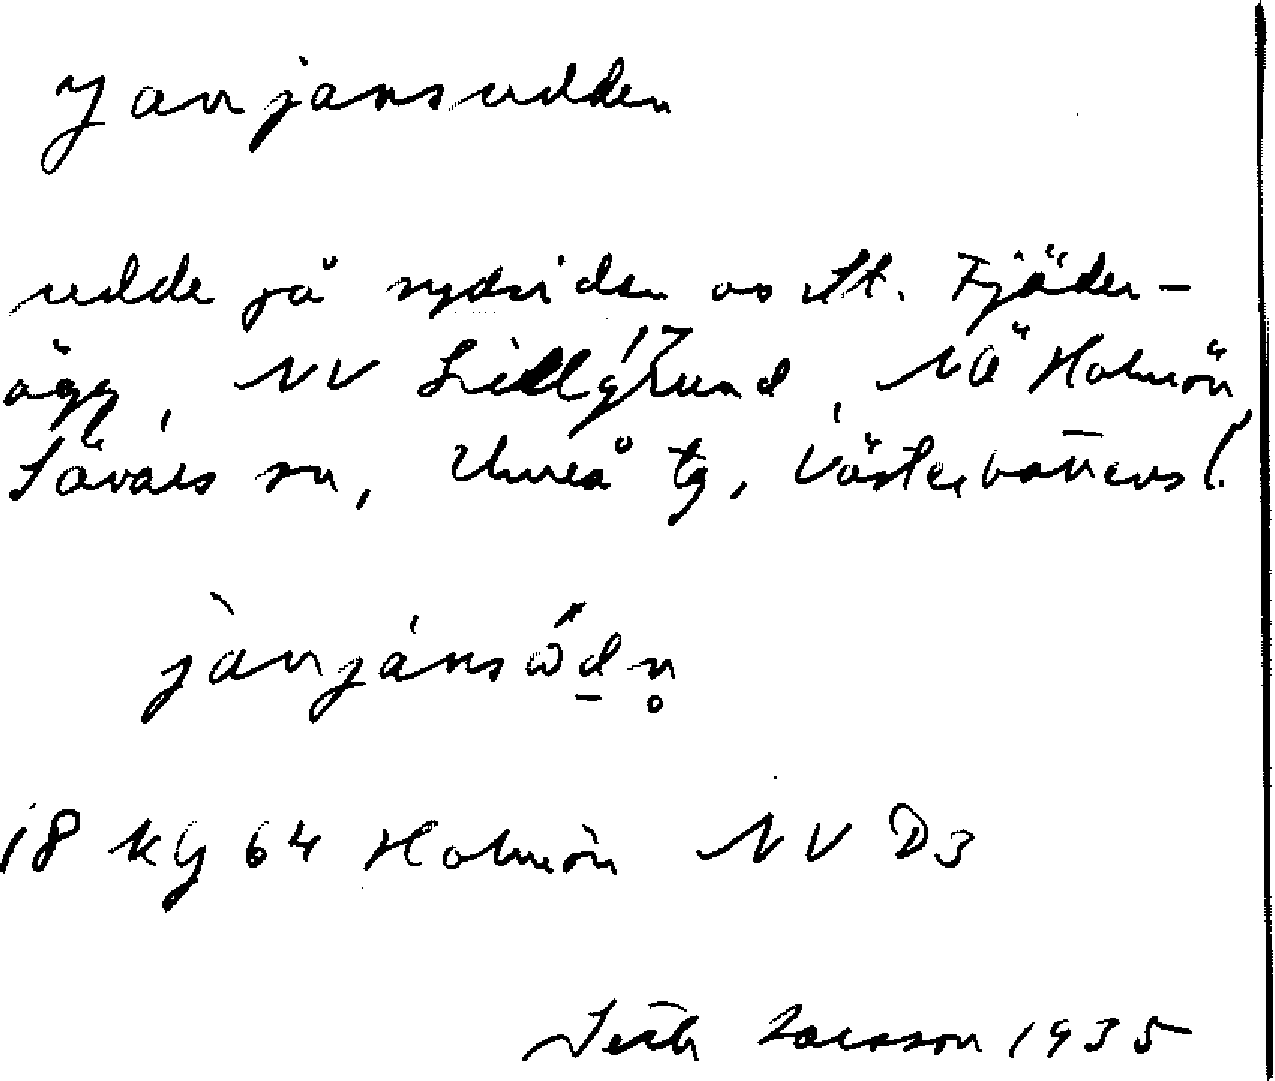 Janjansudden
udde på sydsidan av St. Fjäder-
ägg, NV Lillgrund, NÖ Holmön,
Sävars sn, Umeå tg, Västerbottens l.
jànjánsød̲n̥
18 Kg 64 Holmön NV D3
Seth Larsson 1935